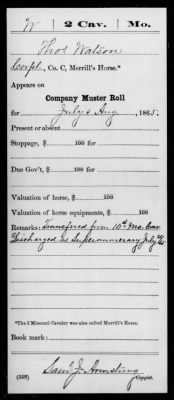 W | 2 Cav. | Mo.
Thos Watson
Corpl., Co. C, Merrill's Horse.*
Appears on
Company Muster Roll
for July & Aug, 1865.
Present or absent
Stoppage, $ 100 for
Due Gov't, $ 100 for
Valuation of horse, $ 100
Valuation of horse equipments, $ 100
Remarks: Transfered from 10th Mo. Cav
Discharged as Supernumerary July
*The 2 Missouri Cavalry was also called Merrill's Horse.
Book mark:
Saml J. Armstrong
(358) Copyist.